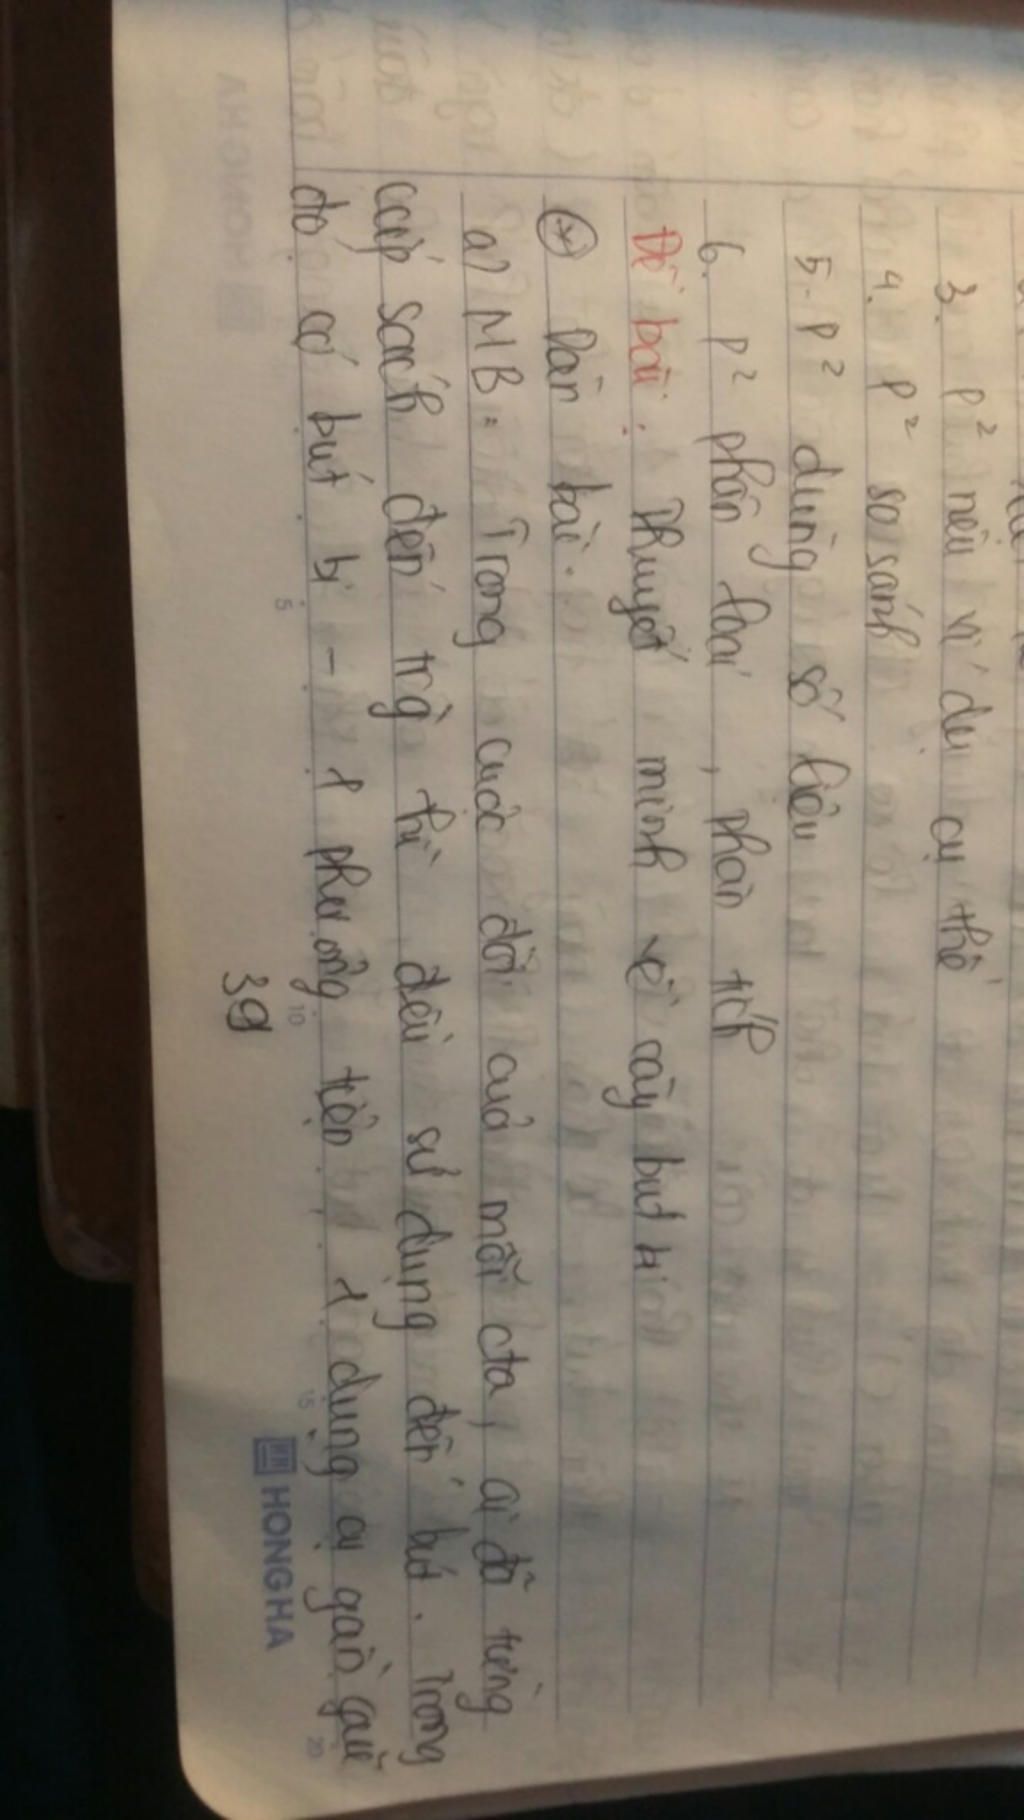 3. P² nêu ví dụ cụ thể
4. P² so sánh
5. P² dùng số liệu
6. P² phân loại, phân tích
Đề bài: Thuyết minh về cây bút bi
* Dàn bài.
a) MB: Trong cuộc đời của mỗi cta, ai đã từng
cắp sách đến trg thì đều sử dụng đến bút. Trong
đó có bút bi - 1 phương tiện, 1 dụng cụ gần gũi
5 10 15 20
39
HONG HA